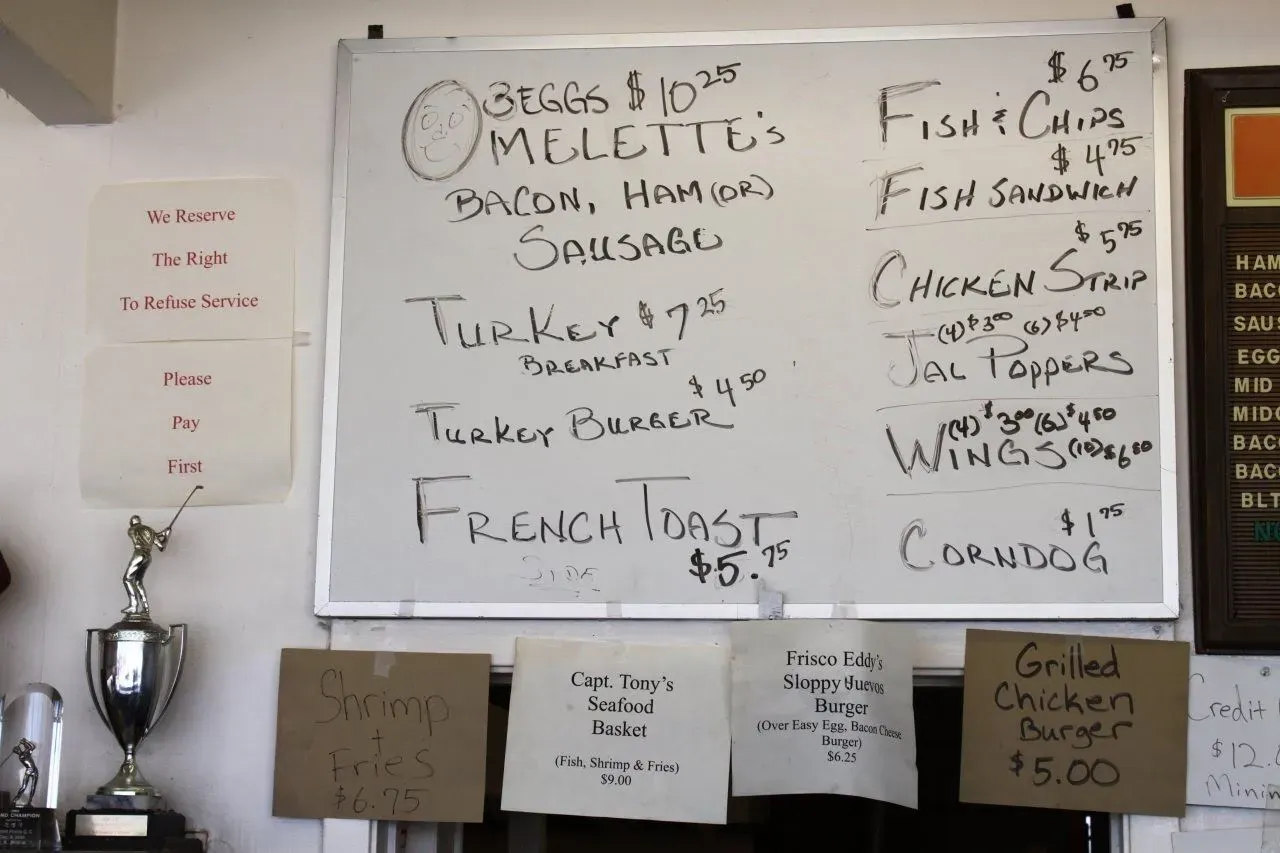 We Reserve
The Right
To Refuse Service
Please
Pay
First
3 EGGS $10.25
OMELETTE's
BACON, HAM (OR)
SAUSAGE
TURKEY $7.25
BREAKFAST
$4.50
TURKEY BURGER
FRENCH TOAST
$5.75
SIDE
$6.75
FISH & CHIPS
$4.75
FISH SANDWICH
$5.75
CHICKEN STRIP
(4) $3.00 (6) $4.50
JAL POPPERS
(4) $3.00 (6) $4.50
WINGS (10) $6.50
$1.75
CORNDOG
HAM
BACO
SAUS
EGG
MID
MIDO
BACO
BACO
BLT
Shrimp
+
Fries
$6.75
Capt. Tony's
Seafood
Basket
(Fish, Shrimp & Fries)
$9.00
Frisco Eddy's
Sloppy Juevos
Burger
(Over Easy Egg, Bacon Cheese
Burger)
$6.25
Grilled
Chicken
Burger
$5.00
Credit
$12.
Minim
ND CHAMPION